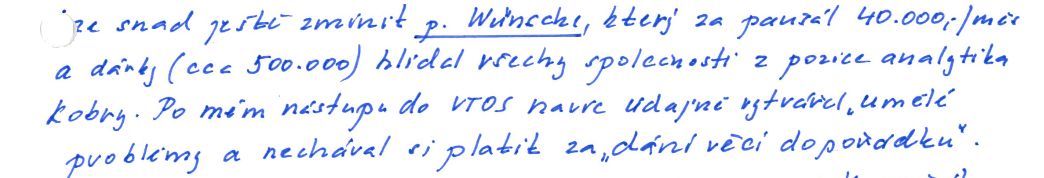 ze snad ještě zmínit p. Wünsche, který za paušál 40.000,-/měs
a dárky (cca 500.000) hlídal všechny společnosti z pozice analytika
Kobry. Po mém nástupu do VTOS navíc údajně vytvářel „umělé
problémy a nechával si platit za „dání věcí dopořádku".